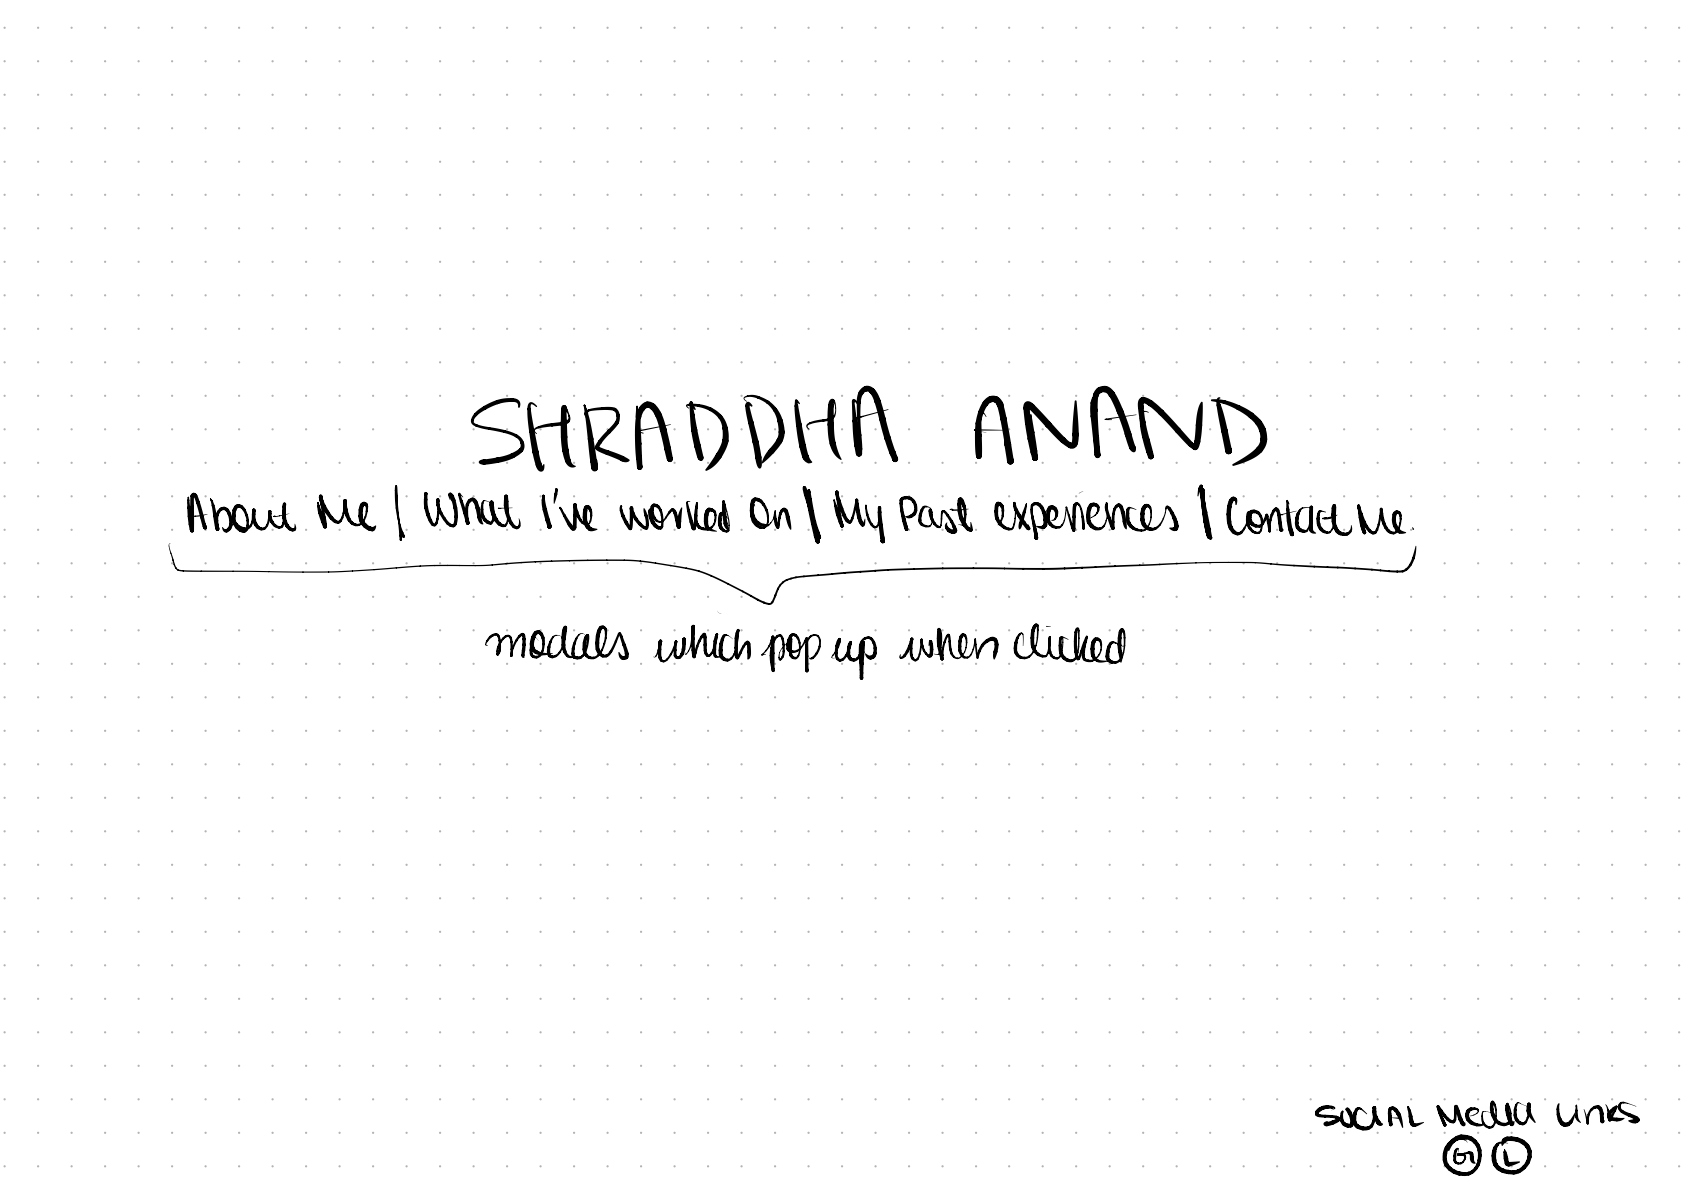 SHRADDHA ANAND
About Me | What I've worked On | My Past experiences | Contact Me
modals which pop up when clicked
SOCIAL Media Links
G L